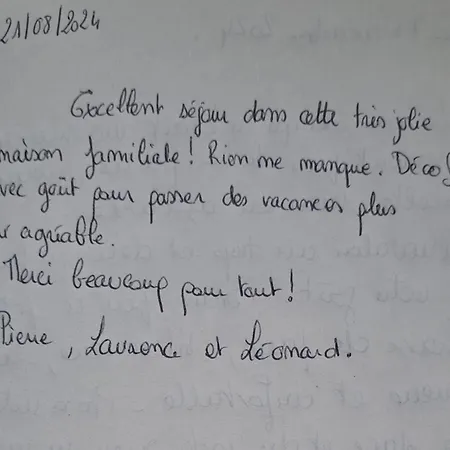 21/08/2024
Excellent séjour dans cette très jolie
maison familiale ! Rien ne manque. Déco
avec goût pour passer des vacances plus
agréable.
Merci beaucoup pour tout !
Pierre, Laurence et Léonard.